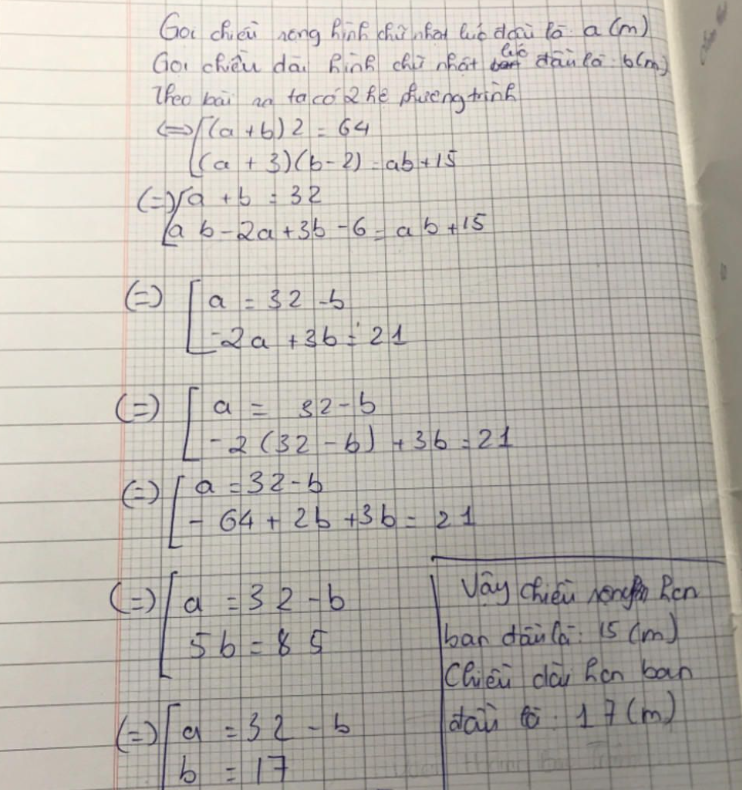 Gọi chiều rộng hình chữ nhật lúc đầu là a (m)
Gọi chiều dài hình chữ nhật lúc đầu là b(m)
Theo bài ra ta có 2 hệ phương trình
<=> [(a + b) 2 = 64
[(a + 3)(b - 2) = ab + 15
(=) [a + b = 32
[ab - 2a + 3b - 6 = ab + 15
(=) [a = 32 - b
[-2a + 3b = 21
(=) [a = 32 - b
[-2 (32 - b) + 3b = 21
(=) [a = 32 - b
[- 64 + 2b + 3b = 21
(=) [a = 32 - b
[5b = 85
(=) [a = 32 - b
[b = 17
Vậy chiều rộng hcn
ban đầu là: 15 (m)
Chiều dài hcn ban
đầu là: 17 (m)